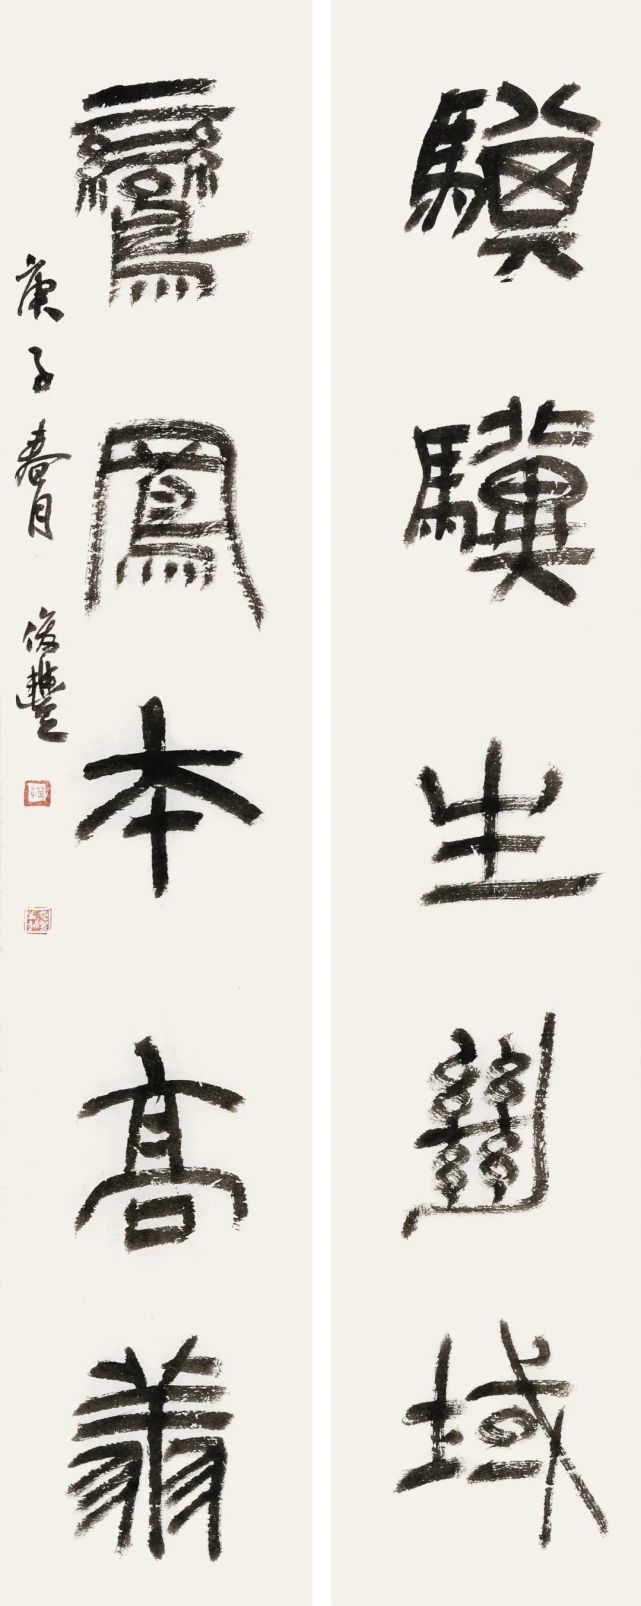 騏驥生絕域
鸞鳳本高翔
庚子春月 俊豐